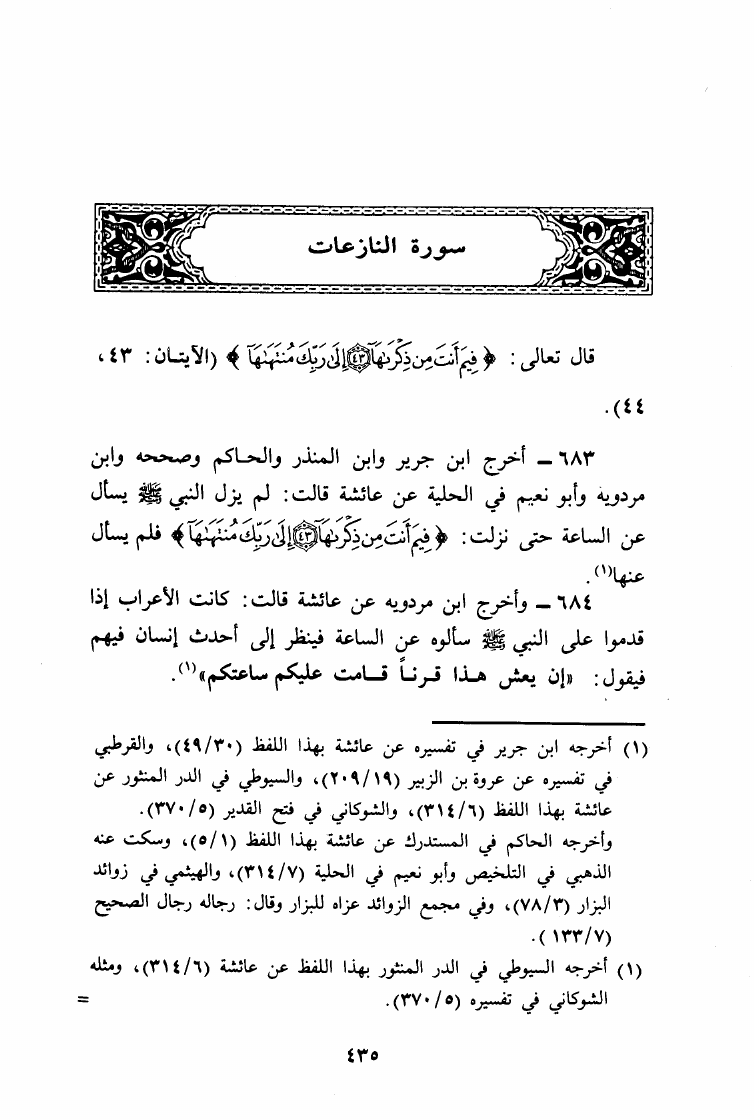 سورة النازعات
قال تعالى: ﴿ فِيمَ أَنتَ مِن ذِكْرَىٰهَآ ٤٣ إِلَىٰ رَبِّكَ مُنتَهَىٰهَآ ﴾ (الآيتـان: ٤٣ ،
٤٤).
٦٨٣ ــ أخرج ابن جرير وابن المنذر والحـاكم وصححه وابن
مردويه وأبو نعيم في الحلية عن عائشة قالت: لم يزل النبي ﷺ يسأل
عن الساعة حتى نزلت: ﴿ فِيمَ أَنتَ مِن ذِكْرَىٰهَآ ٤٣ إِلَىٰ رَبِّكَ مُنتَهَىٰهَآ ﴾ فلم يسأل
عنها(١).
٦٨٤ ــ وأخرج ابن مردويه عن عائشة قالت: كانت الأعراب إذا
قدموا على النبي ﷺ سألوه عن الساعة فينظر إلى أحدث إنسان فيهم
فيقول: «إن يعش هـذا قـرنـاً قـامت عليكم ساعتكم»(١).
(١) أخرجه ابن جرير في تفسيره عن عائشة بهذا اللفظ (٤٩/٣٠)، والقرطبي
في تفسيره عن عروة بن الزبير (٢٠٩/١٩)، والسيوطي في الدر المنثور عن
عائشة بهذا اللفظ (٣١٤/٦)، والشوكاني في فتح القدير (٣٧٠/٥).
وأخرجه الحاكم في المستدرك عن عائشة بهذا اللفظ (٥/١)، وسكت عنه
الذهبي في التلخيص وأبو نعيم في الحلية (٣١٤/٧)، والهيثمي في زوائد
البزار (٧٨/٣)، وفي مجمع الزوائد عزاه للبزار وقال: رجاله رجال الصحيح
(١٣٣/٧).
(١) أخرجه السيوطي في الدر المنثور بهذا اللفظ عن عائشة (٣١٤/٦)، ومثله
الشوكاني في تفسيره (٣٧٠/٥). =
٤٣٥